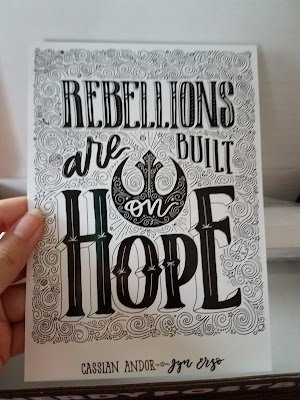 REBELLIONS
are BUILT
on
HOPE
CASSIAN ANDOR Jyn Erso